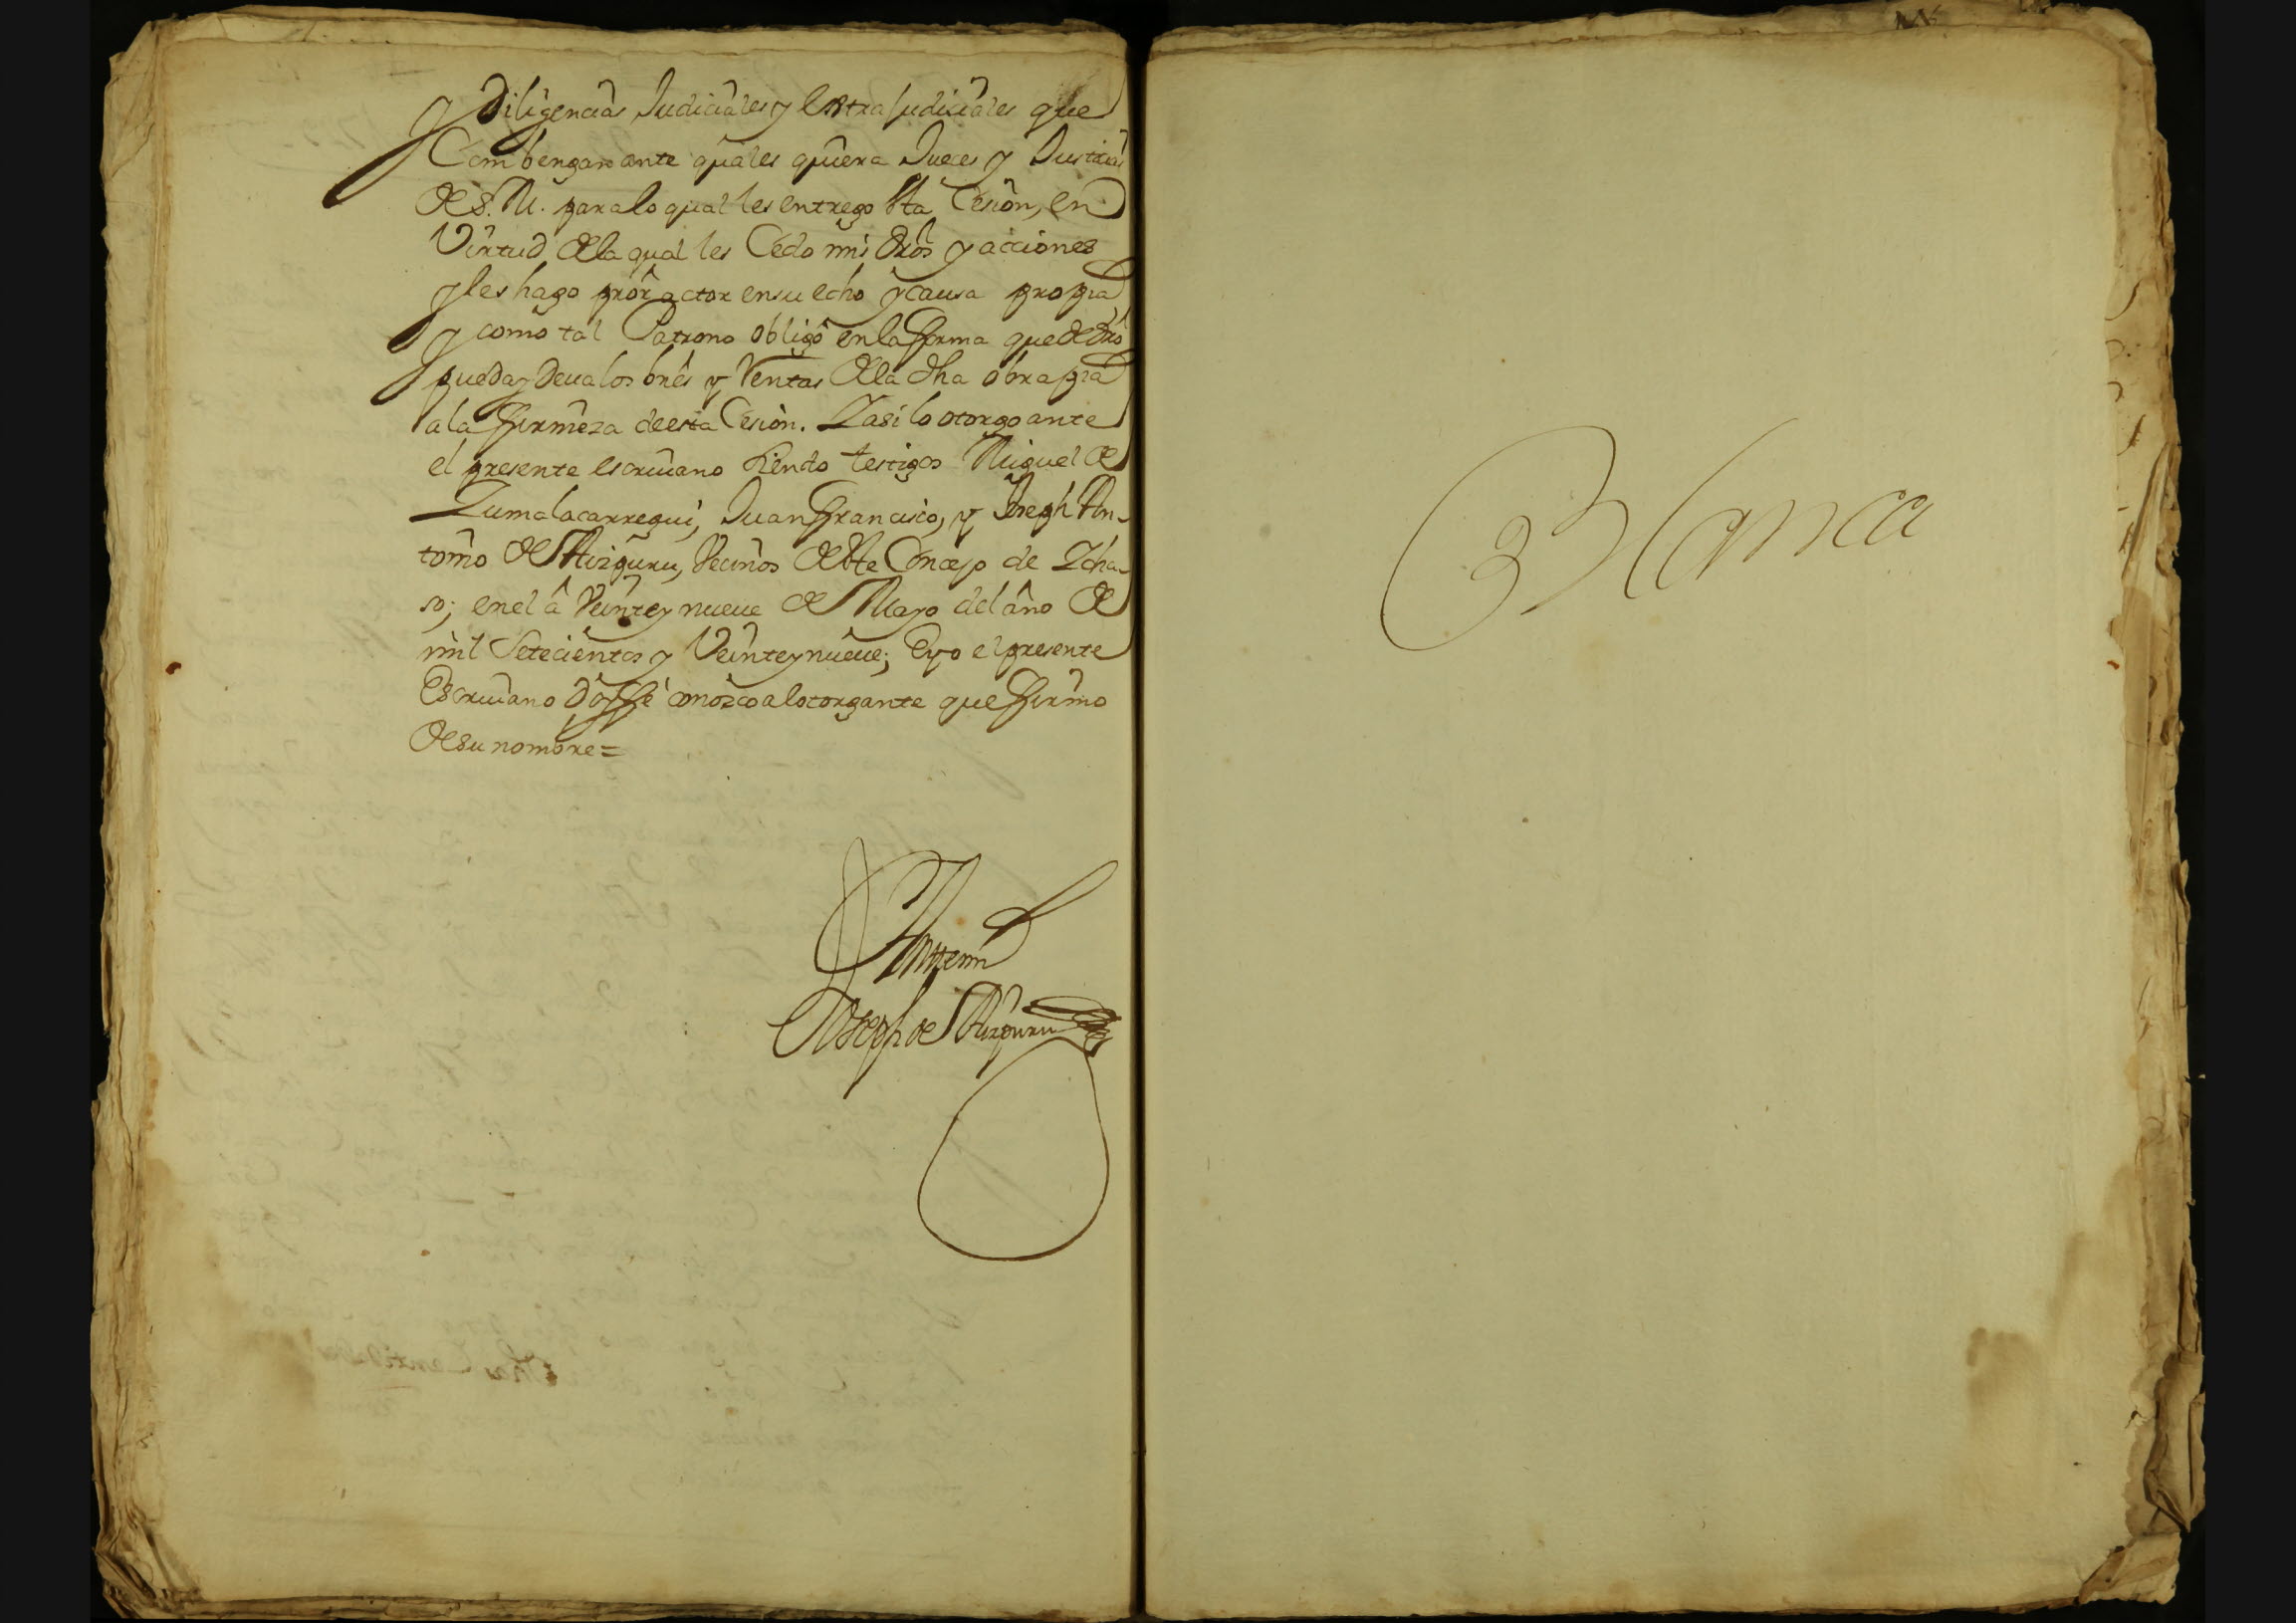 y Diligencias Judiciales y Extrajudiciales que
Combengan ante quales quiera Jueces y Justicias
de S. M. para lo qual les entrego esta Cesion, en
Virtud de la qual les Cedo mis dros y acciones
y les hago pror actor en su echo y causa propia
y como tal Patrono obligo en la fforma que de dro
pueda y deva los bnes y Rentas de la dha obra pia
a la ffirmeza de esta Cesion. Y asi lo otorgo ante
el presente escriuano siendo testigos Miguel de
Zumalacarregui, Juan Francisco, y Joseph An-
tonio de Aizpuru, Vecinos de este Concejo de Ycha-
so; en el a Veinte y nueue de Mayo del año de
mil Setecientos y Veinte y nueue; E yo el presente
Escriuano doy ffe conozco al otorgante que ffirmo
de su nombre =
Ante mi
Joseph de Aizpuru
Blanca